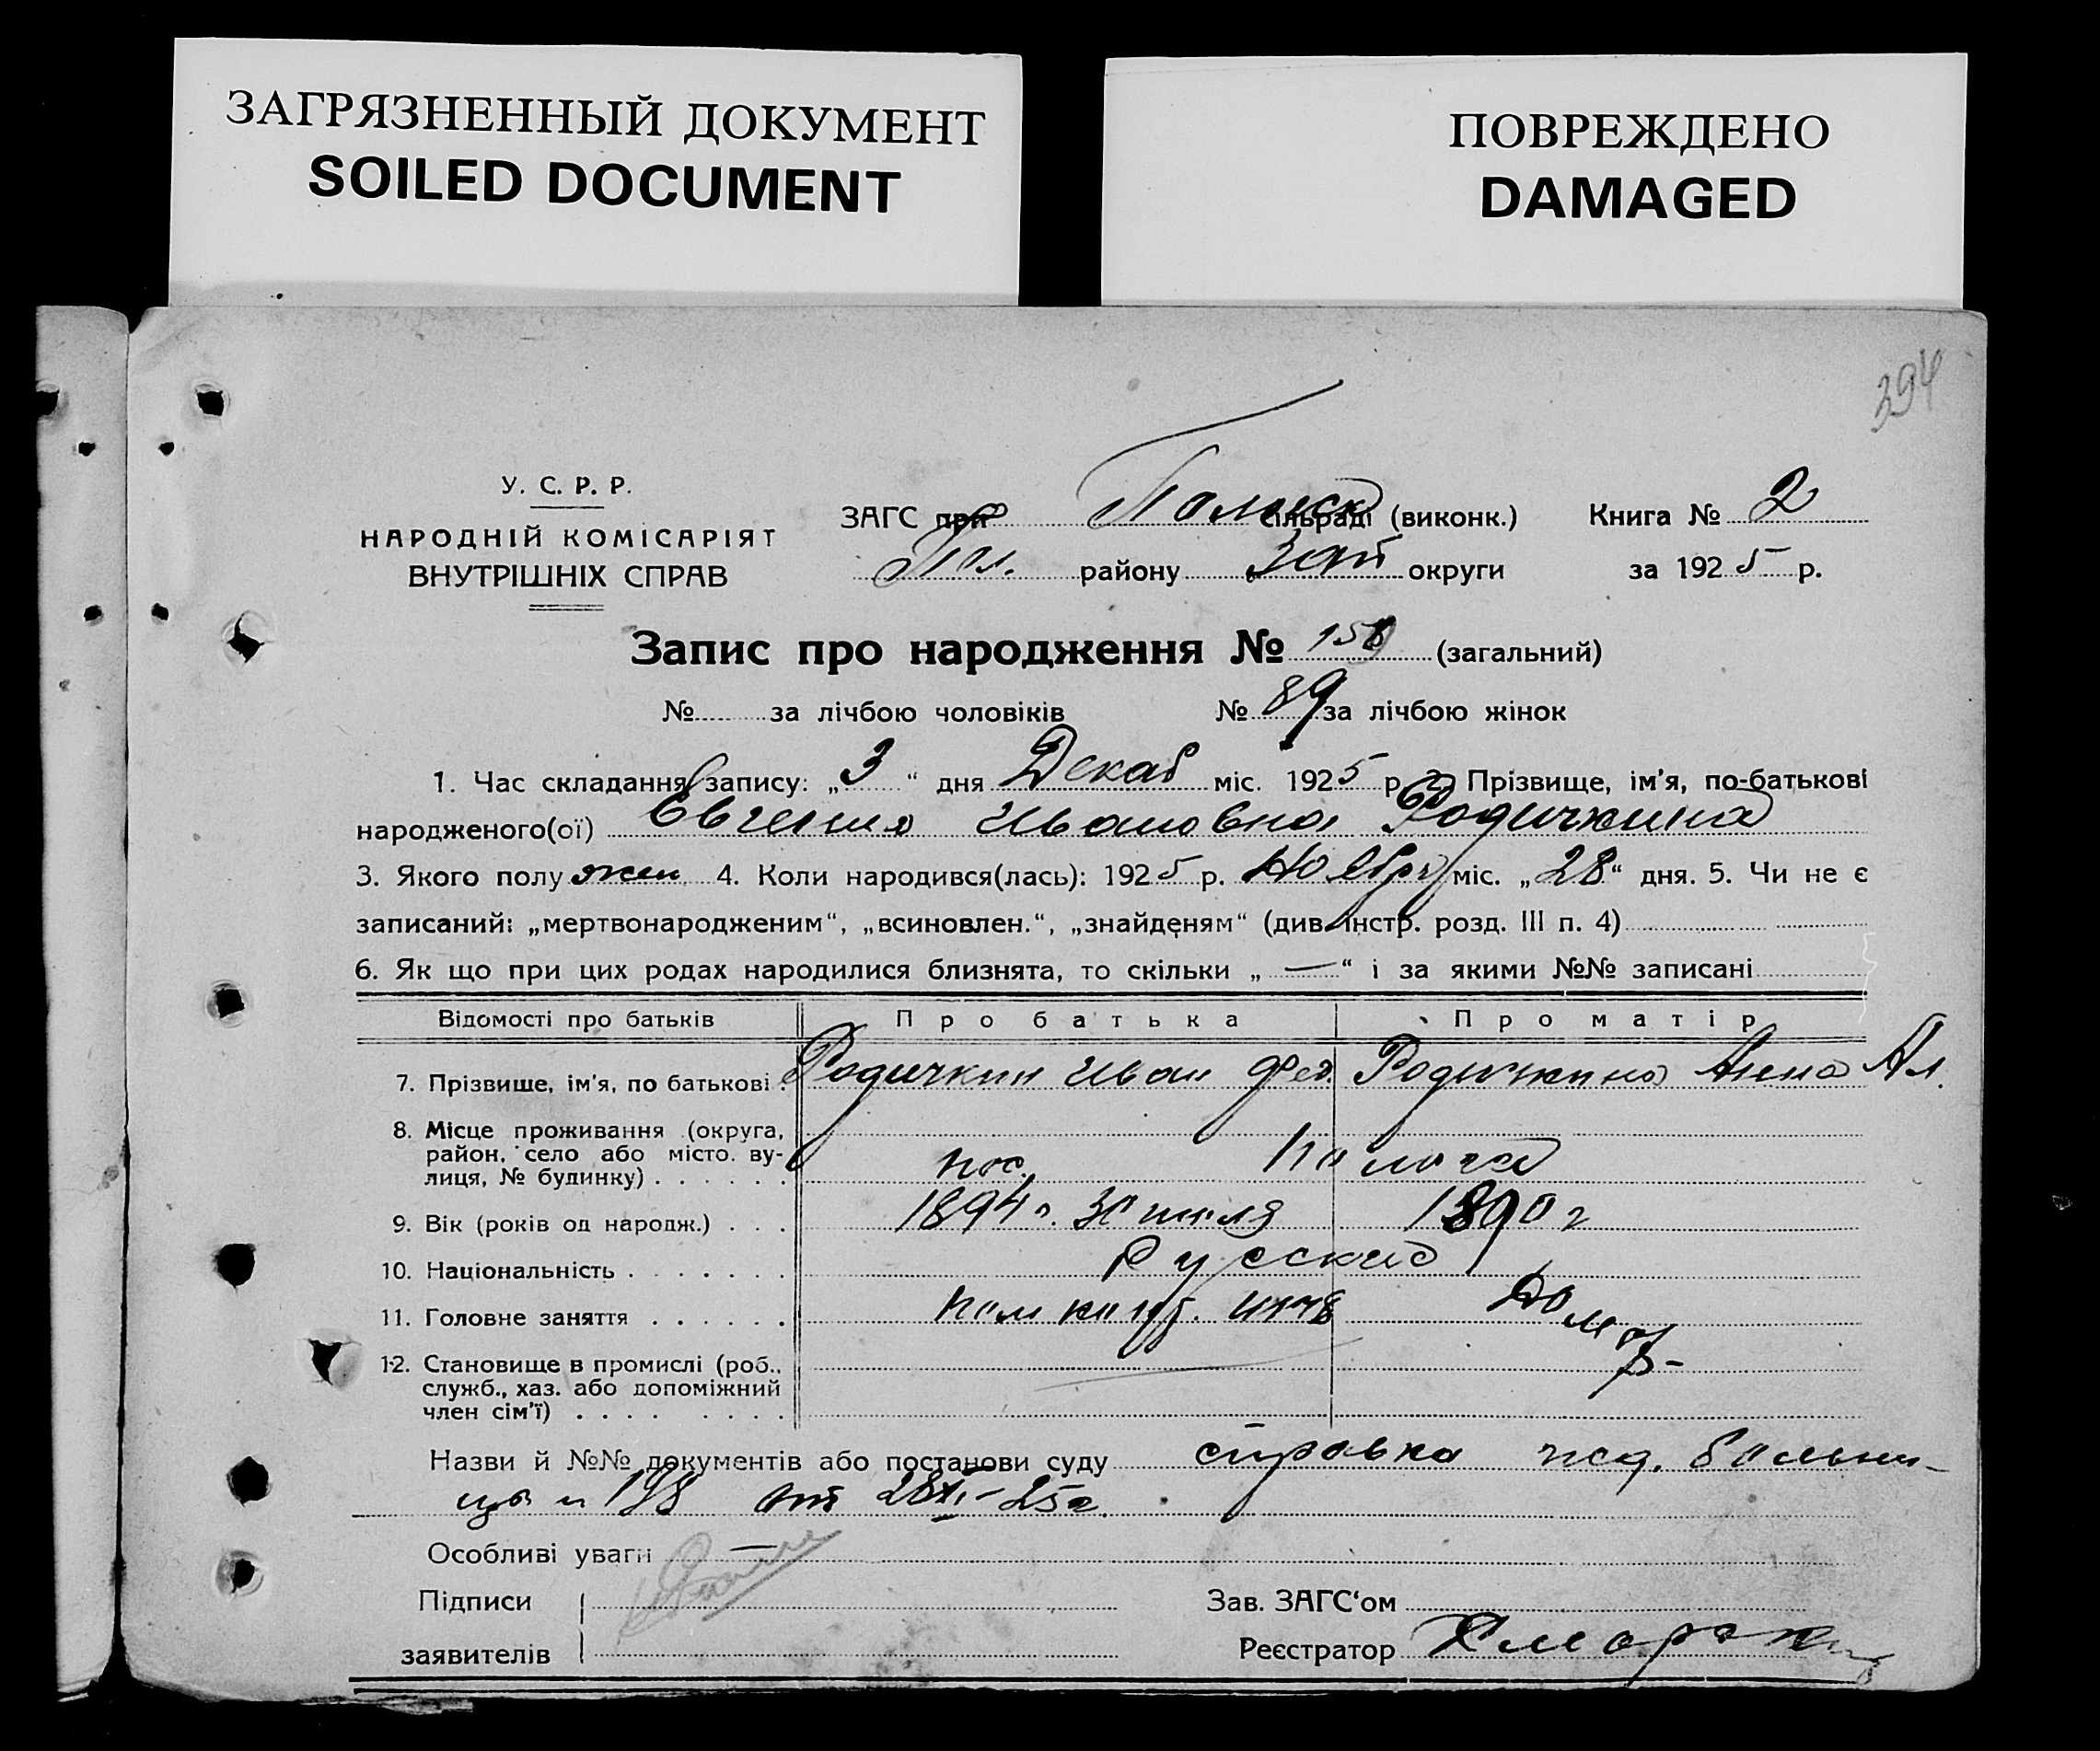 ЗАГРЯЗНЕННЫЙ ДОКУМЕНТ
SOILED DOCUMENT
ПОВРЕЖДЕНО
DAMAGED
394
У. С. Р. Р.
НАРОДНІЙ КОМІСАРІЯТ
ВНУТРІШНІХ СПРАВ
ЗАГС при Пологск сільраді (виконк.)
Пол. району Зап округи
Книга № 2
за 1925 р.
Запис про народження № 158 (загальний)
№ за лічбою чоловіків № 89 за лічбою жінок
1. Час складання запису: „3“ дня Декаб міс. 1925 р. 2. Прізвище, ім'я, по-батькові
народженого(ої) Евгения Ивановна Родичкина
3. Якого полу жен. 4. Коли народився(лась): 1925 р. Ноября міс. „28“ дня. 5. Чи не є
записаний: „мертвонародженим“, „всиновлен.“, „знайденям“ (див. інстр. розд. III п. 4)
6. Як що при цих родах народилися близнята, то скільки „—“ і за якими №№ записані
Відомості про батьків Про батька Про матір
7. Прізвище, ім'я, по батькові Родичкин Иван Фед. Родичкина Анна Ал.
8. Місце проживання (округа,
район, село або місто, ву-
лиця, № будинку) пос. Пологи
9. Вік (років од народж.) 1894 г. 30 июля 1890 г
10. Національність Русские
11. Головне заняття Дом
12. Становище в промислі (роб.,
служб., хаз. або допоміжний
член сім'ї)
Назви й №№ документів або постанови суду справка жед. больни-
цы № 198 от 28/XI-25г.
Особливі уваги —
Підписи
заявителів
Зав. ЗАГС'ом
Реєстратор